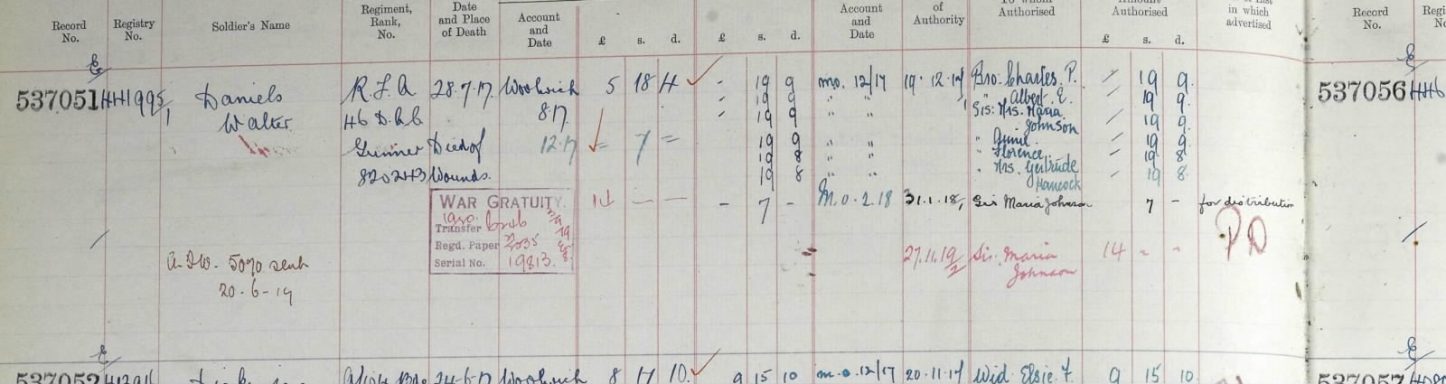 Record No.
Registry No.
Soldier's Name
Regiment, Rank, No.
Date and Place of Death
Account and Date
£ s. d.
£ s. d.
Account and Date
of Authority
To whom Authorised
Authorised
£ s. d.
in which advertised
Record No.
537051
Daniels Walter
R.F.A. 46 D.A.C. Gunner 820243
28.7.17 Died of Wounds.
Woolwich 8.17 5 18 4
12.17 = 7 =
- 19 9 mo. 12/17 19.12.17 Bro: Charles. P. 19 9.
19 9 " " " Albert. E. 19 9.
19 9 " " Sis: Mrs. Maria Johnson 19 9.
19 9 " " " 19 9
19 8 " " " Florence 19 8
19 8 " " " Mrs. Gertrude Hancock 19 8.
- 7 - M.O. 2.18 31.1.18, Sis Maria Johnson 7 - for distribution
WAR GRATUITY.
Transfer
Regd. Paper
Serial No. 19813.
14 — —
27.11.19 Sis. Maria Johnson 14 - -
50% sent
20-6-19
537056
537052
Woolwich 8 17 10.
9 15 10 m.o. 12/17 20.11.17 Wid. Elsie. F. 9 15 10
537057